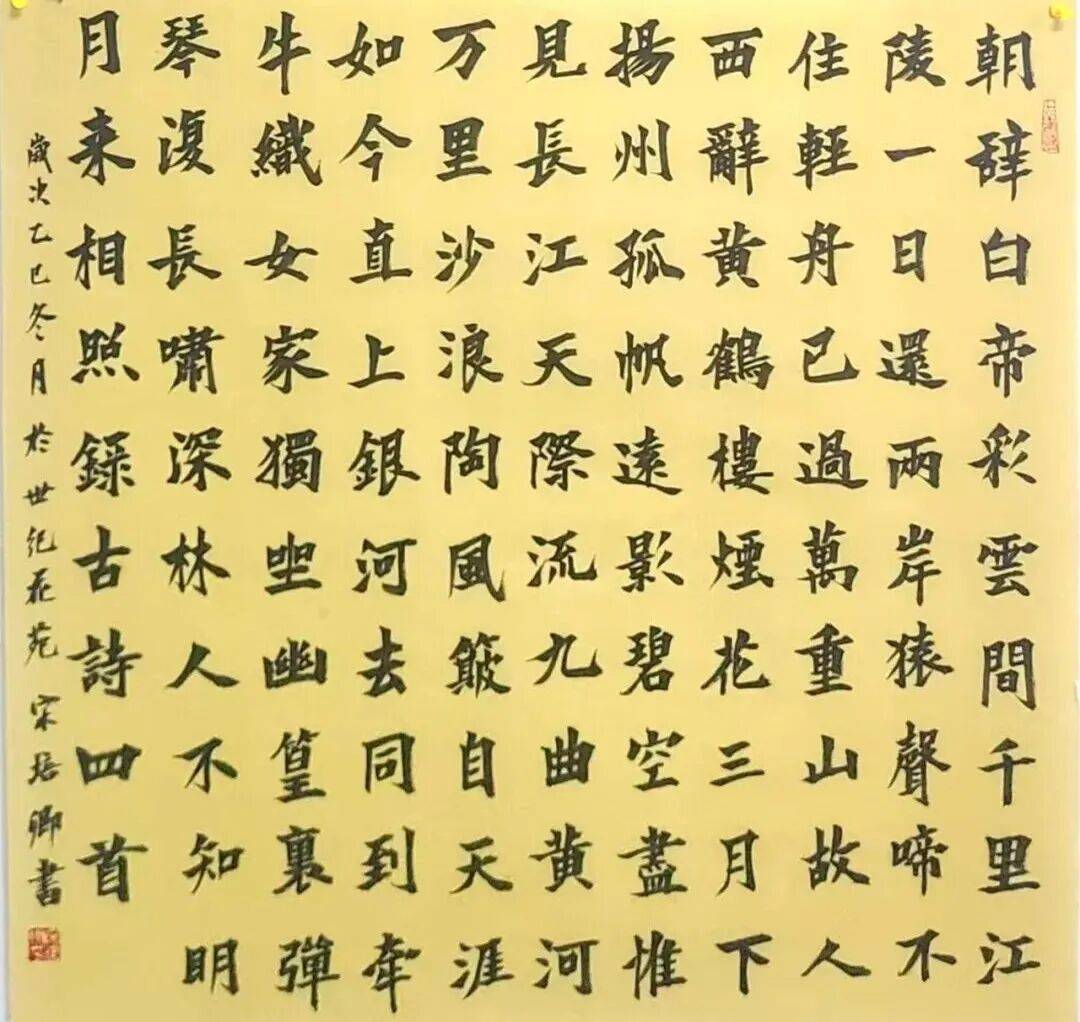 朝辞白帝彩雲間千里江
陵一日還兩岸猿聲啼不
住輕舟已過萬重山故人
西辭黄鶴樓煙花三月下
揚州孤帆遠影碧空盡惟
見長江天際流九曲黄河
万里沙浪陶風簸自天涯
如今直上銀河去同到牽
牛織女家獨坐幽篁裏彈
琴復長嘯深林人不知明
月来相照錄古詩四首
歲次乙巳冬月於世纪花苑宋培卿書